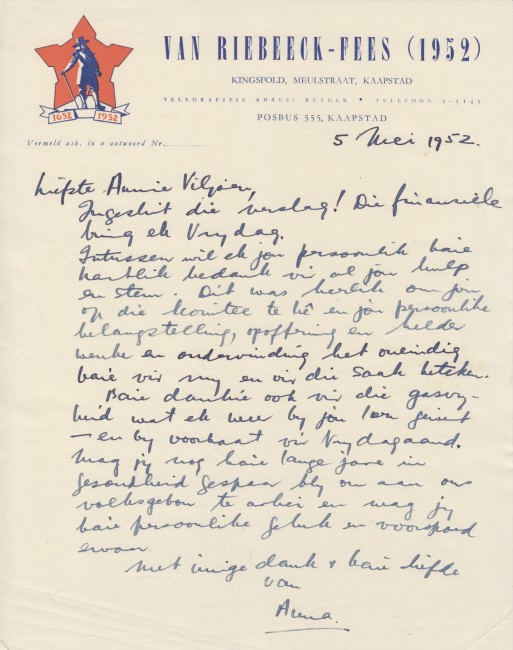 VAN RIEBEECK-FEES (1952)
KINGSFOLD, MEULSTRAAT, KAAPSTAD
TELEGRAFIESE ADRES: RUYGER • TELEFOON 2-5145
POSBUS 555, KAAPSTAD
1652 1952
Vermeld asb. in u antwoord Nr.
5 Mei 1952.
Liefste Annie Viljoen,
Ingesluit die verslag! Die finansiële
bring ek Vrydag.
Intussen wil ek jou persoonlik baie
hartlik bedank vir al jou hulp
en steun. Dit was heerlik om jou
op die komitee te hê en jou persoonlike
belangstelling, opoffering en helder
wenke en ondervinding het oneindig
baie vir my en vir die saak beteken.
Baie dankie ook vir die gasvry-
heid wat ek weer by jou kon geniet
— en by voorbaat vir Vrydagaand.
Mag jy nog baie lange jare in
gesondheid gespaar bly om aan ons
volksgebou te arbei en mag jy
baie persoonlike geluk en voorspoed
ervaar.
Met innige dank & baie liefde
van
Anna.